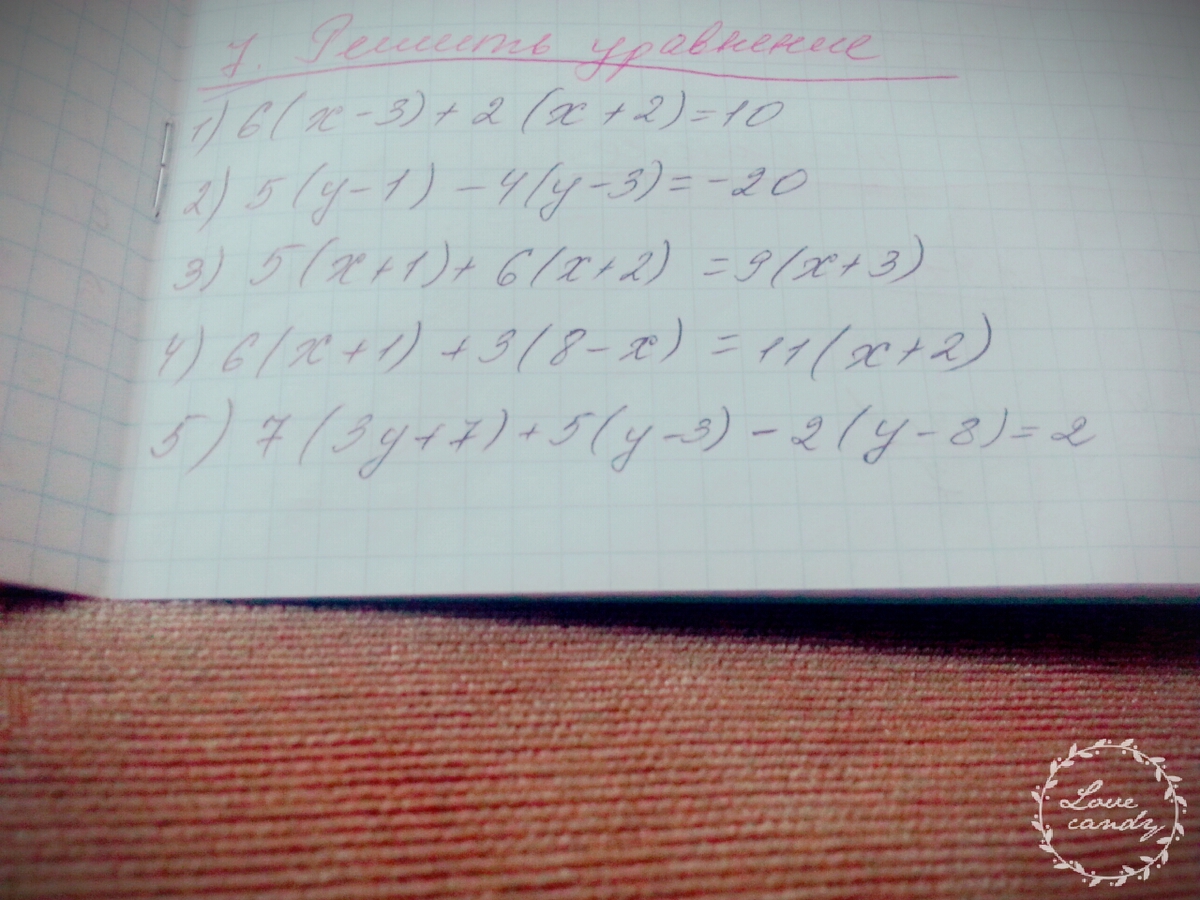 7. Решить уравнение
1) 6(x-3)+2(x+2)=10
2) 5(y-1)-4(y-3)=-20
3) 5(x+1)+6(x+2)=9(x+3)
4) 6(x+1)+3(8-x)=11(x+2)
5) 7(3y+7)+5(y-3)-2(y-8)=2
Love
candy